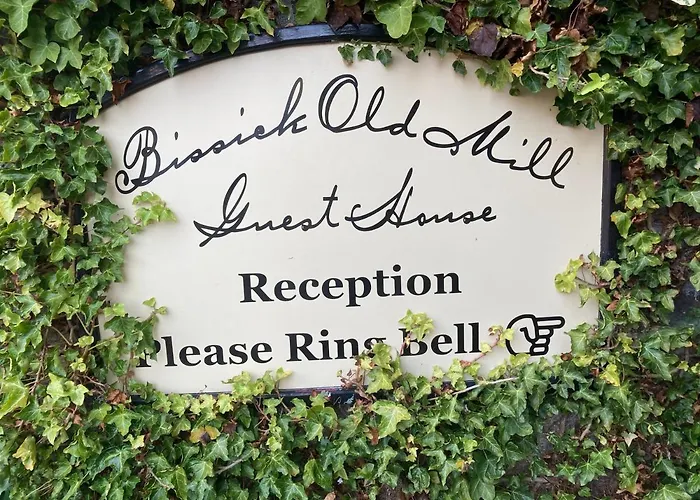 Bissick Old Mill
Guest House
Reception
Please Ring Bell